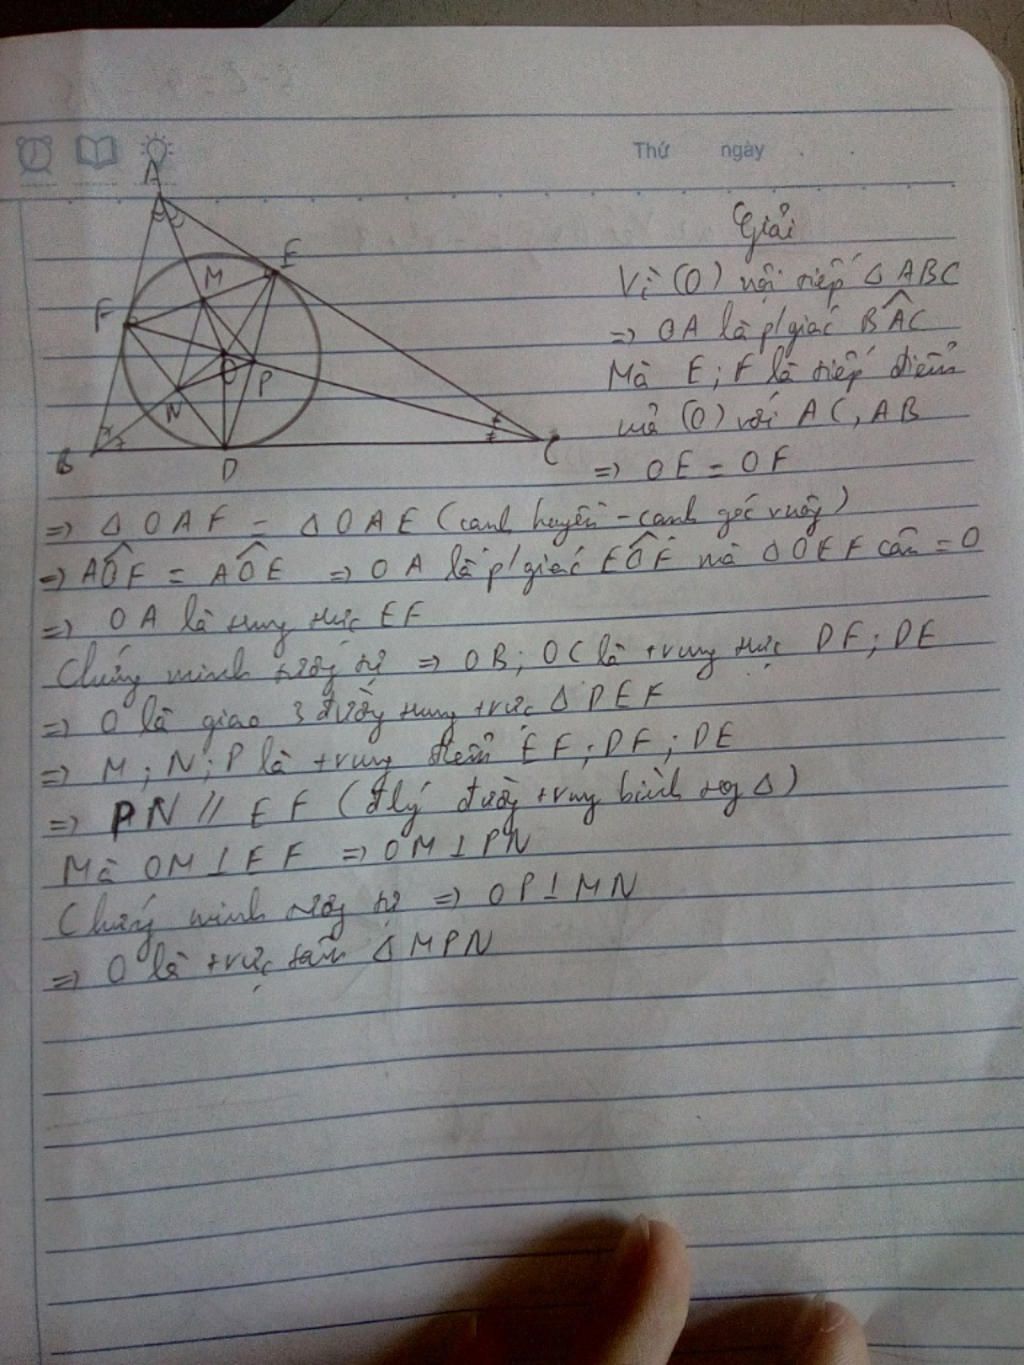 Thứ ngày
A
E
M
F
O
P
N
B
D
C
Giải
Vì (O) nội tiếp Δ ABC
=> OA là p/giác BÂC
Mà E; F là tiếp điểm
của (O) với AC, AB
=> OE = OF
=> Δ OAF = Δ OAE (cạnh huyền - cạnh góc vuông)
=> AÔF = AÔE => OA là p/giác EÔF mà Δ OEF cân = O
=> OA là trung trực EF
Chứng minh tương tự => OB; OC là trung trực DF; DE
=> O là giao 3 đường trung trực Δ DEF
=> M; N; P là trung điểm EF; DF; DE
=> PN // EF (đlý đường trung bình tog Δ)
Mà OM ⊥ EF => OM ⊥ PN
Chứng minh tương tự => OP ⊥ MN
=> O là trực tâm Δ MPN